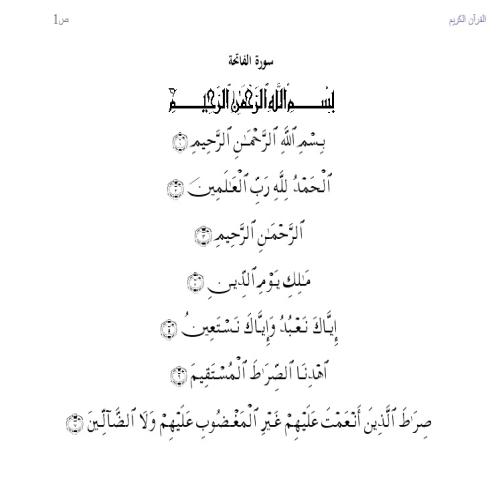 القرآن الكريم ص1
سورة الفاتحة
بِسْمِ ٱللَّهِ ٱلرَّحْمَٰنِ ٱلرَّحِيمِ
بِسْمِ ٱللَّهِ ٱلرَّحْمَٰنِ ٱلرَّحِيمِ ١
ٱلْحَمْدُ لِلَّهِ رَبِّ ٱلْعَٰلَمِينَ ٢
ٱلرَّحْمَٰنِ ٱلرَّحِيمِ ٣
مَٰلِكِ يَوْمِ ٱلدِّينِ ٤
إِيَّاكَ نَعْبُدُ وَإِيَّاكَ نَسْتَعِينُ ٥
ٱهْدِنَا ٱلصِّرَٰطَ ٱلْمُسْتَقِيمَ ٦
صِرَٰطَ ٱلَّذِينَ أَنْعَمْتَ عَلَيْهِمْ غَيْرِ ٱلْمَغْضُوبِ عَلَيْهِمْ وَلَا ٱلضَّآلِّينَ ٧